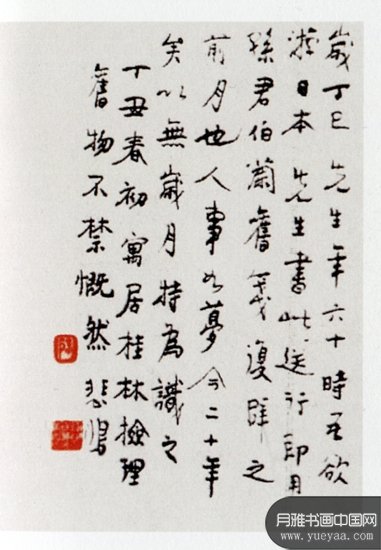 歲丁巳先生年六十時至欲
游日本先生書此送行即用
孫君伯蘭舊箋復辟之
前月也人事如夢今二十年
矣以無歲月特為識之
丁丑春初寓居桂林撿理
舊物不禁慨然悲
月雅书画中国网
www.yueyaa.com